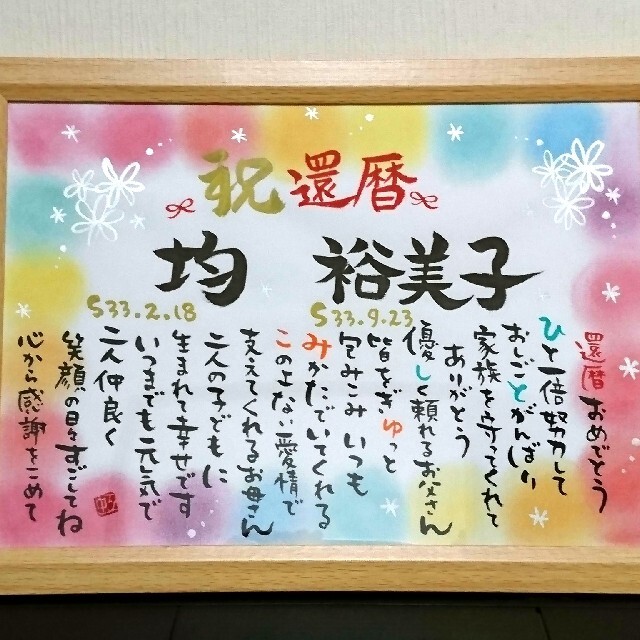 祝還暦
均 裕美子
S33.2.18 S33.9.23
還暦おめでとう
ひと一倍努力して
おしごとがんばり
家族を守ってくれて
ありがとう
優しく頼れるお父さん
皆をぎゅっと
包みこみいつも
みかたでいてくれる
このよない愛情で
支えてくれるお母さん
二人の子どもに
生まれて幸せです
いつまでも元気で
二人仲良く
笑顔の日々すごしてね
心から感謝をこめて